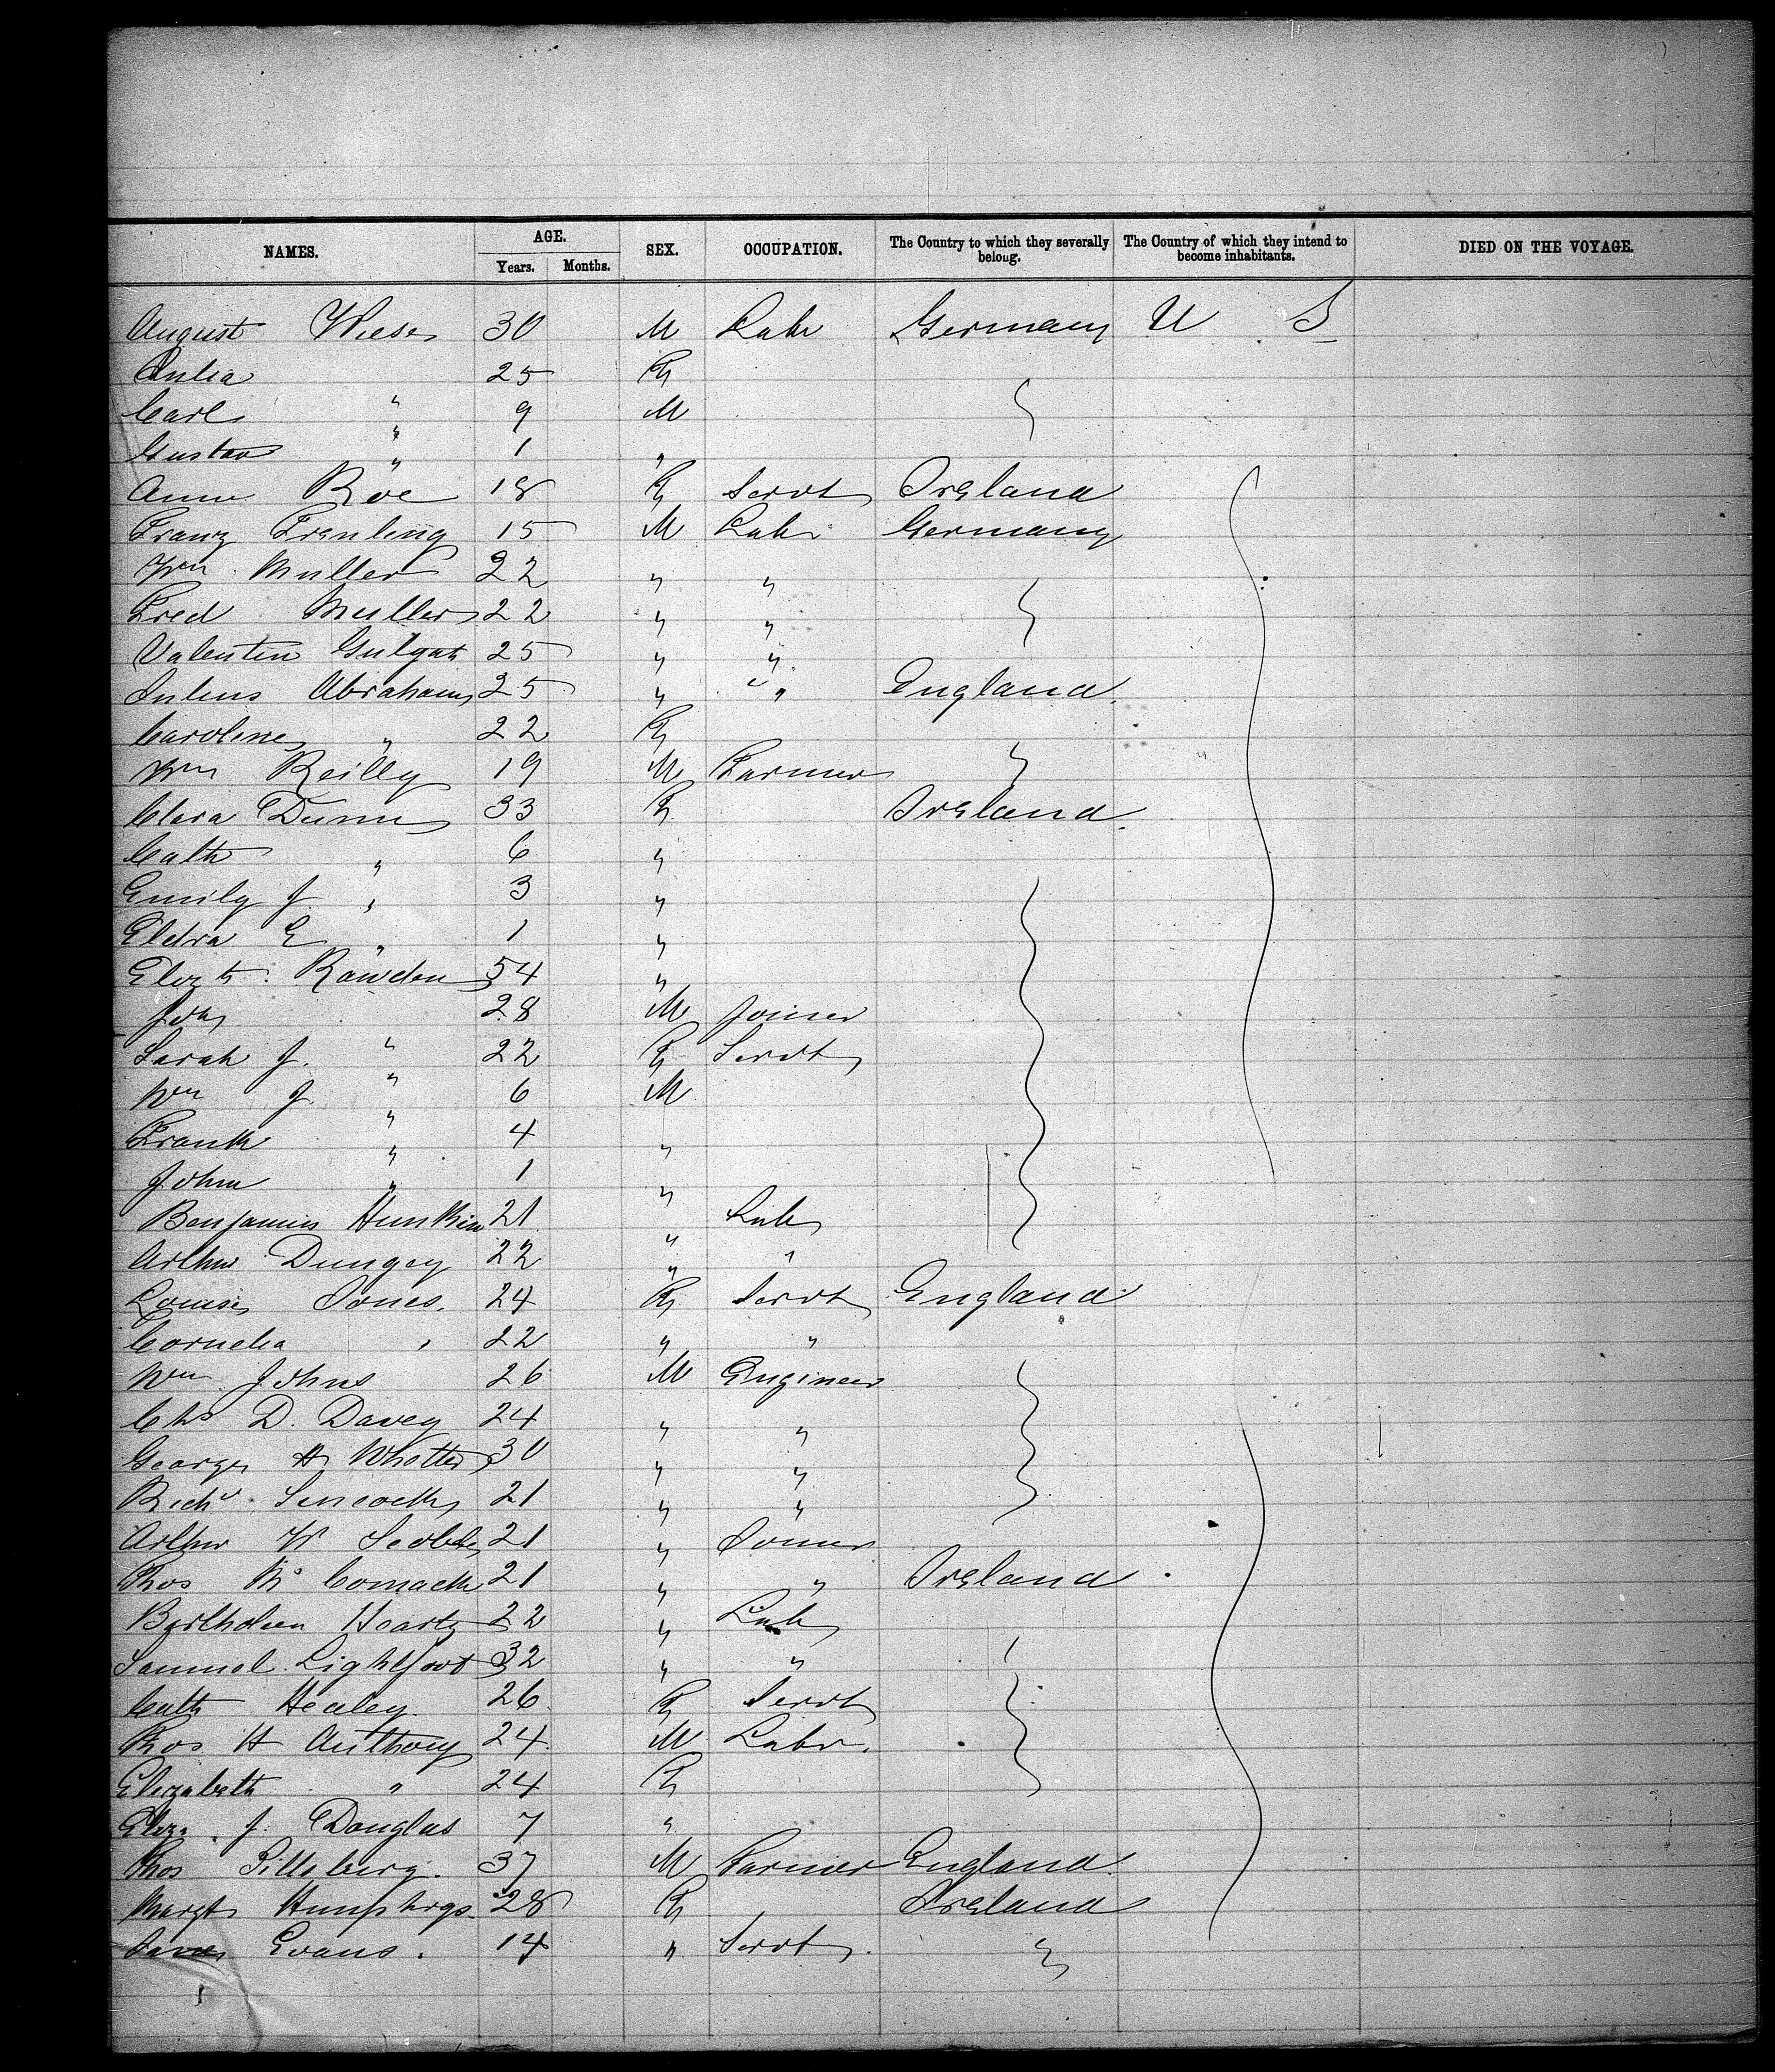 NAMES. AGE. Years. Months. SEX. OCCUPATION. The Country to which they severally belong. The Country of which they intend to become inhabitants. DIED ON THE VOYAGE.
August Wiese 30 M Labr Germany U S
Julia 25 F
Carl " 9 M
Gustav " 1 "
Anne Roe 18 F Servt Ireland
Franz 15 M Labr Germany
Wm Muller 22 " "
Fred Muller 22 " "
Valentin 25 " "
Julius Abrahams 25 " " England
Caroline " 22 F
Wm Reilly 19 M Farmer
Clara Dunn 33 F Ireland
Cath " 6 "
Emily J " 3 "
E " 1 "
Elizth Rawden 54 "
Jos 28 M Joiner
Sarah J. " 22 F Servt
Wm J " 6 M
Frank " 4 "
John " 1 "
Benjamin Hunkin 21 " Lab
Arthur Dungey 22 " "
Louisa Jones. 24 F Servt England
Cornelia " 22 " "
Wm Johns 26 M Engineer
Chs D. Davey 24 " "
George H 30 " "
Richd 21 " "
Arthur W 21 " Joiner
Thos McComack 21 " " Ireland
22 " Lab
Samuel Lightfoot 32 " "
Cath Healey 26 F Servt
Thos H Anthony 24 M Labr.
Elizabeth " 24 F
Eliza J. Douglas 7 "
Thos 37 M Farmer England
Margt Humphrys 28 F Ireland
Evans. 14 " Servt